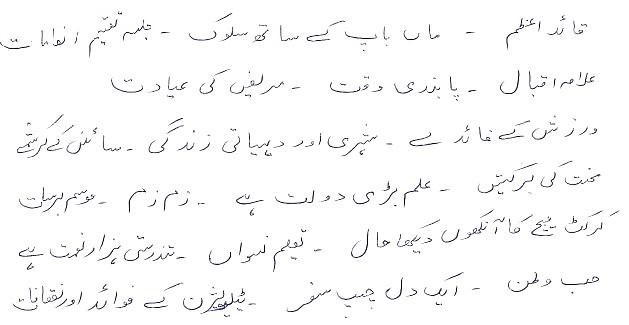 قائد اعظم - ماں باپ کے ساتھ سلوک - جلسہ تقسیم انعامات
علامہ اقبال - پابندی وقت - مریض کی عیادت
ورزش کے فائدے - شہری اور دیہاتی زندگی - سائنس کے کرشمے
محنت کی برکتیں - علم بڑی دولت ہے - زم زم - موسم برسات
کرکٹ میچ کا آنکھوں دیکھا حال - تعلیم نسواں - تندرستی ہزار نعمت ہے
حب وطن - ایک دل چسپ سفر - ٹیلیویژن کے فوائد اور نقصانات